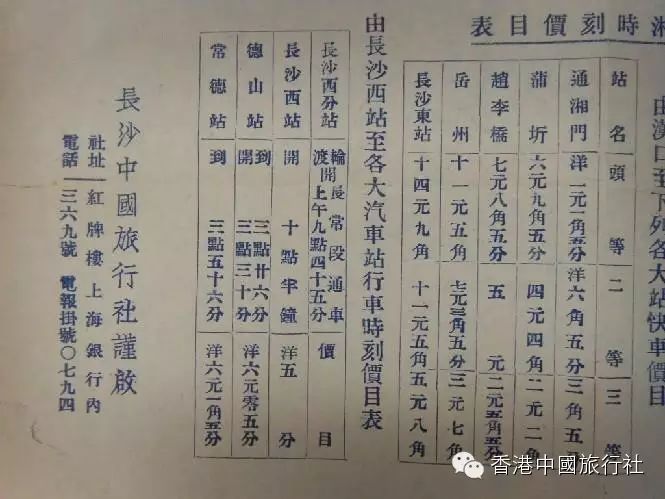 湘時刻價目表
由漢口至下列各大站快車價目
站名 頭等 二等 三等
通湘門 洋 元一角五分 洋六角五分 三角五
蒲圻 六元九角五分 四元四角 二元二角
趙李橋 七元八角五分 五元 二元五角五分
岳州 十一元五角 元三角五分 三元七角
長沙東站 十四元九角 十一元五角 五元八角
由長沙西站至各大汽車站行車時刻價目表
長沙西分站 輪渡開 長常段通車 上午九點四十五分 價目
長沙西站 開 十點半鐘 洋五分
德山站 到 三點廿六分 開 三點三十分 洋六元零五分
常德站 到 三點五十六分 洋六元一角五分
長沙中國旅行社謹啟
社址 紅牌樓上海銀行內
電話 三六九號 電報掛號〇七九四
香港中國旅行社